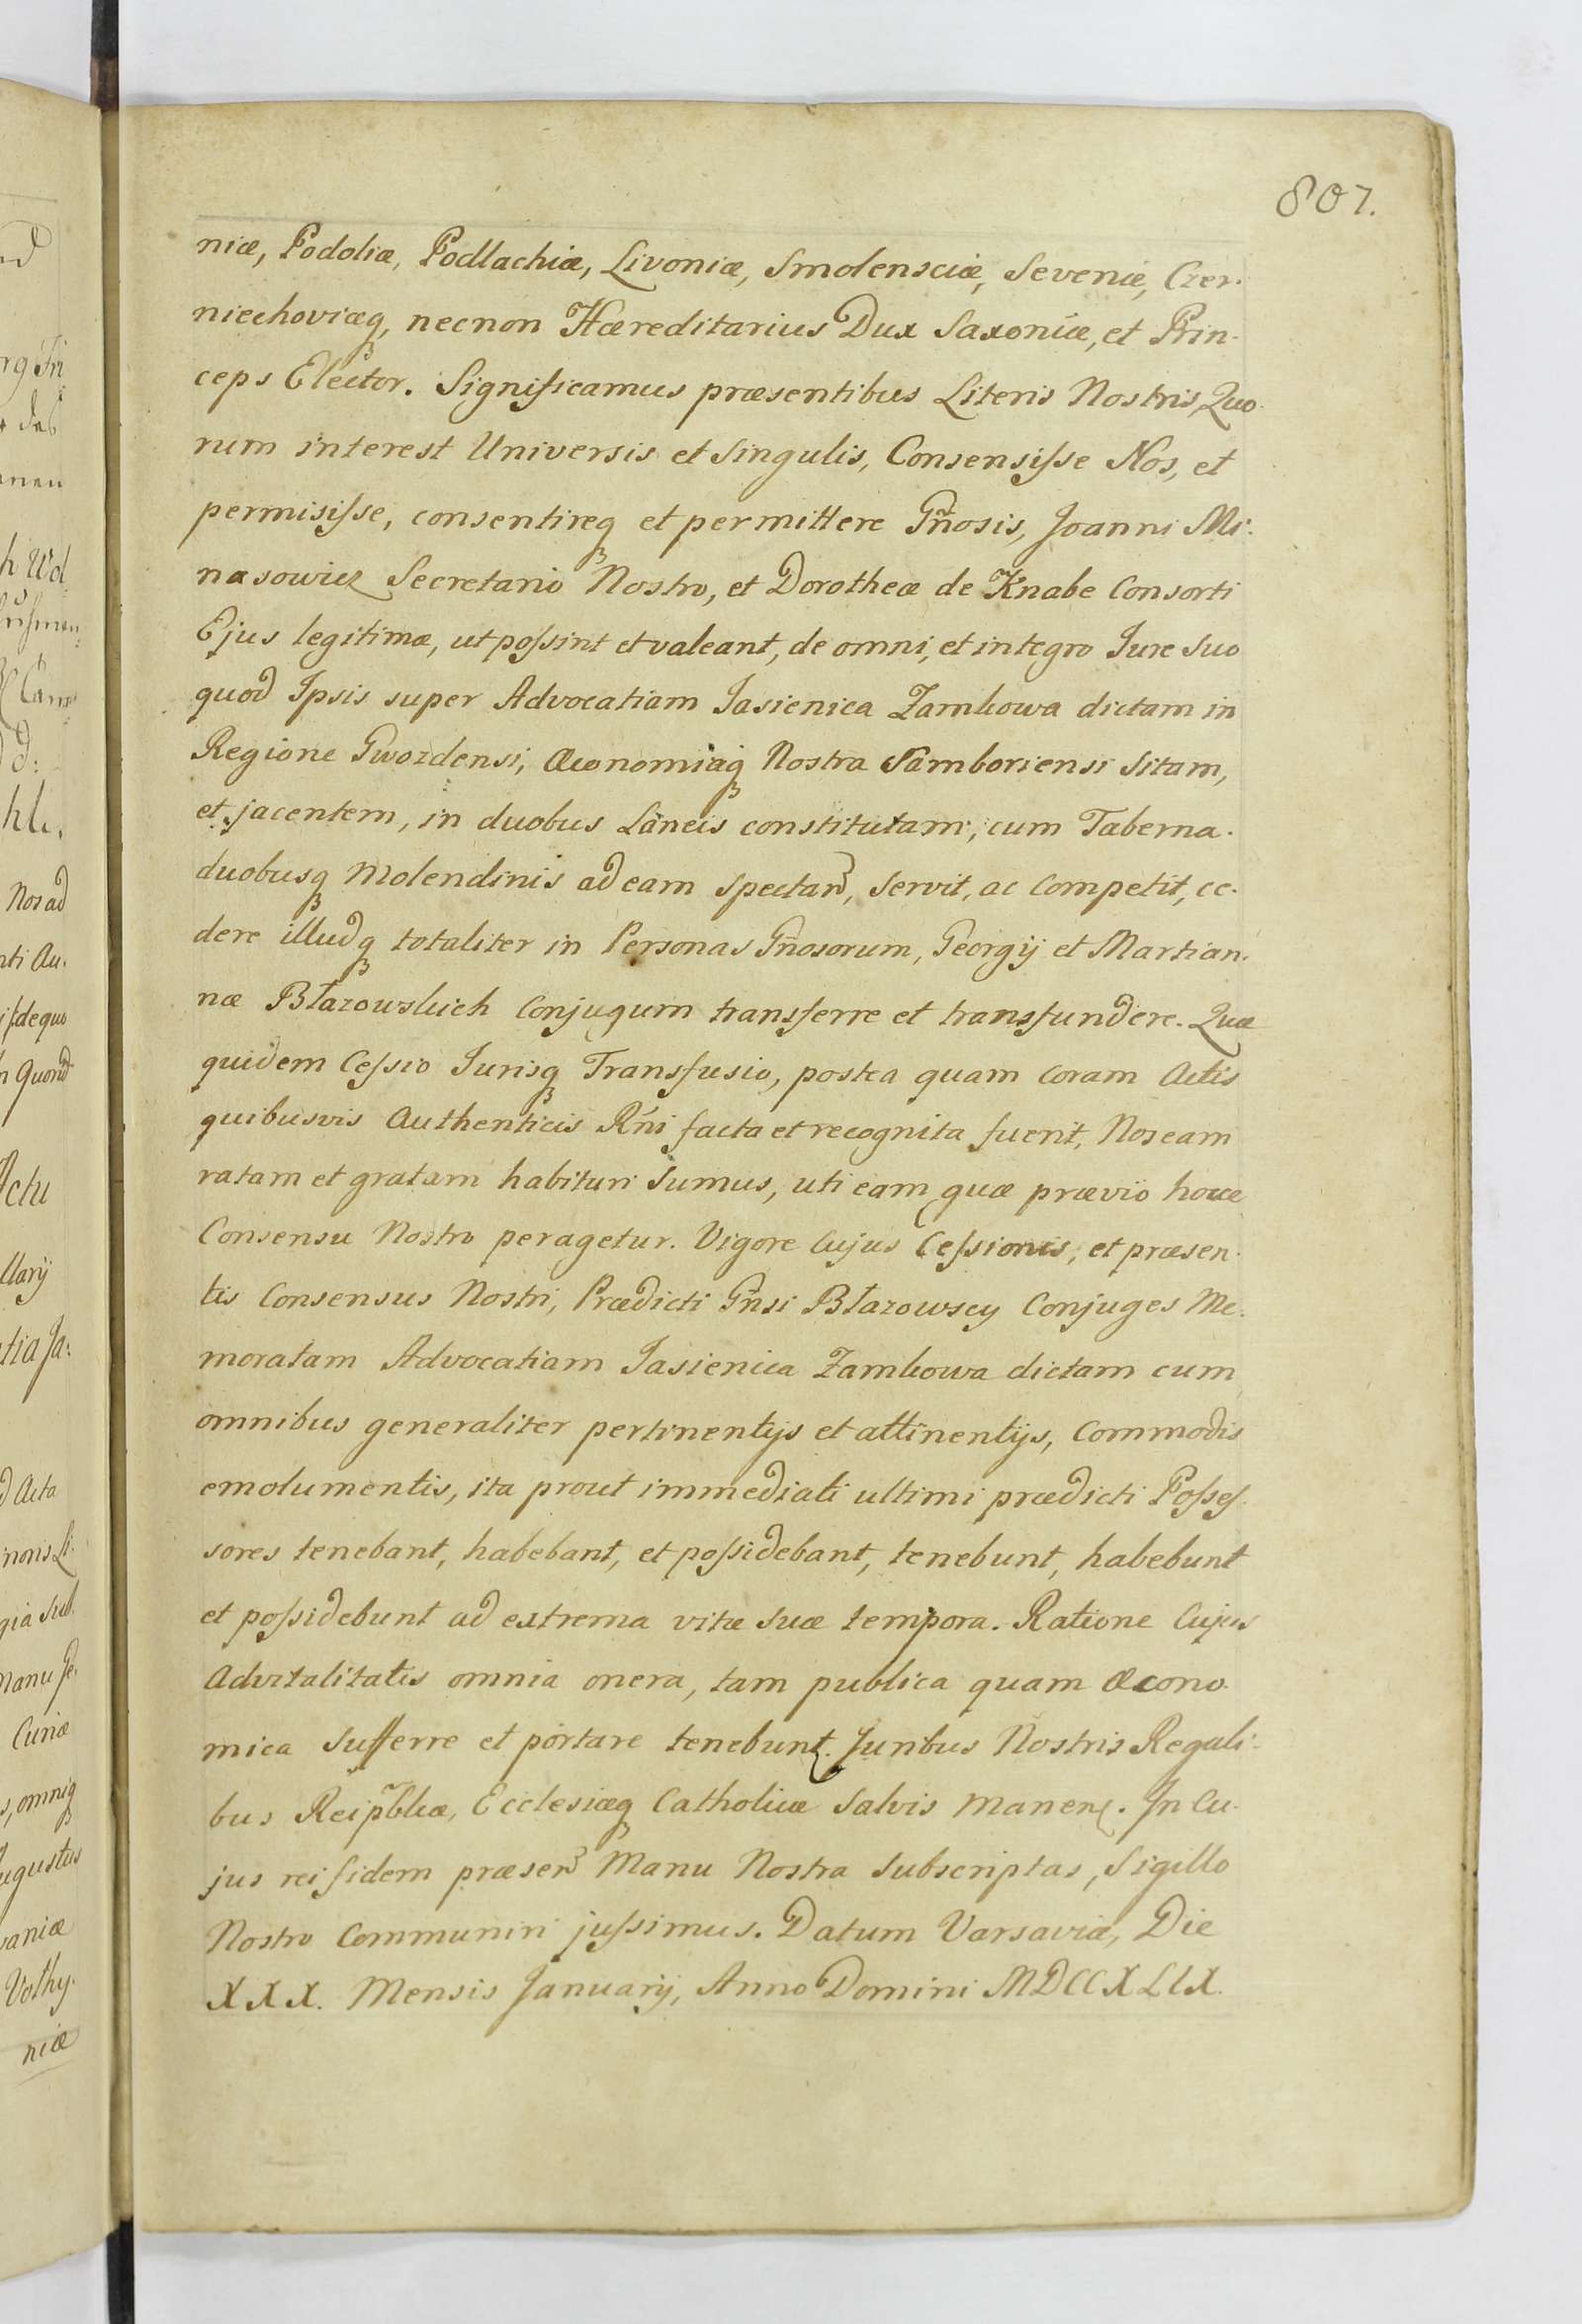 807.
niæ, Podoliæ, Podlachiæ, Livoniæ, Smolensciæ, Seveniæ, Czer-
niechoviæq, necnon Hæreditarius Dux Saxoniæ, et Prin-
ceps Elector. Significamus præsentibus Literis Nostris, Quo-
rum interest Universis et Singulis, Consensiſse Nos, et
permisiſse, consentireq et permittere Gñosis, Joanni Mi-
nasowicz Secretario Nostro, et Dorotheæ de Knabe Consorti
Ejus legitimæ, ut poſsint et valeant, de omni, et integro Jure Suo
quod Ipsis super Advocatiam Jasienica Zamkowa dictam in
Regione Gwozdensi, Œconomiaq Nostra Samboriensi Sitam,
et jacentem, in duobus Laneis constitutam, cum Taberna.
duobusq Molendinis ad eam spectan, Servit, ac Competit, ce-
dere illudq totaliter in Personas Gñosorum, Georgij et Martian-
næ Błazowskich Conjugum transferre et transfundere. Quæ
quidem Ceſsio Jurisq Transfusio, postea quam Coram Actis
quibusvis Authenticis Rńi facta et recognita fuerit, Nos eam
ratam et gratam habituri Sumus, uti eam quæ prævio hocce
Consensu Nostro peragetur. Vigore Cujus Ceſsionis, et præsen-
tis Consensus Nostri, Prædicti Gñsi Błazowscy Conjuges Me-
moratam Advocatiam Jasienica Zamkowa dictam cum
omnibus generaliter pertinentijs et attinentijs, Commodis
emolumentis, ita prout immediati ultimi prædicti Poſseſ-
sores tenebant, habebant, et poſsidebant, tenebunt, habebunt
et poſsidebunt ad extrema vitæ Suæ tempora. Ratione Cujus
Advitalitatis omnia onera, tam publica quam Œcono-
mica Sufferre et portare tenebunt. Juribus Nostris Regali-
bus Reip̃blicæ, Ecclesiæq Catholicæ Salvis manen. In Cu-
jus rei fidem præsen Manu Nostra Subscriptas, Sigillo
Nostro Communiri juſsimus. Datum Varsaviæ, Die
XXX. Mensis Januarij, Anno Domini MDCCXLIX.